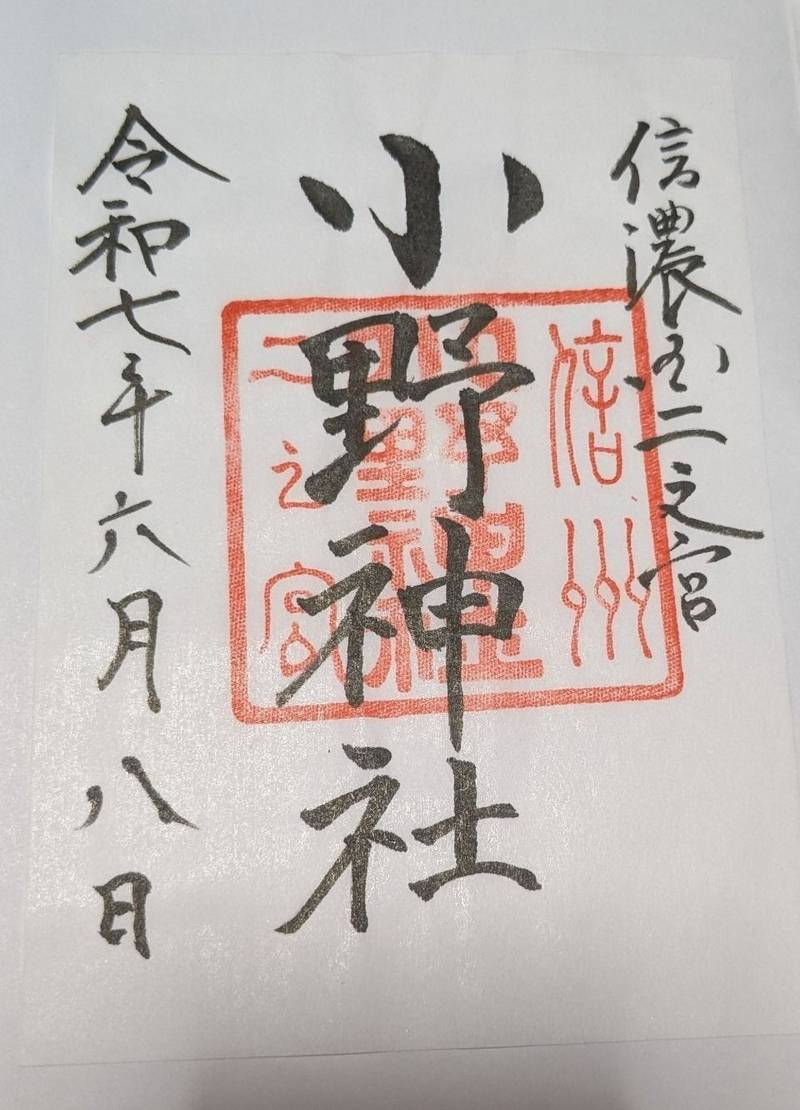 信濃国二之宮
小野神社
令和七年六月八日
信州
二之宮